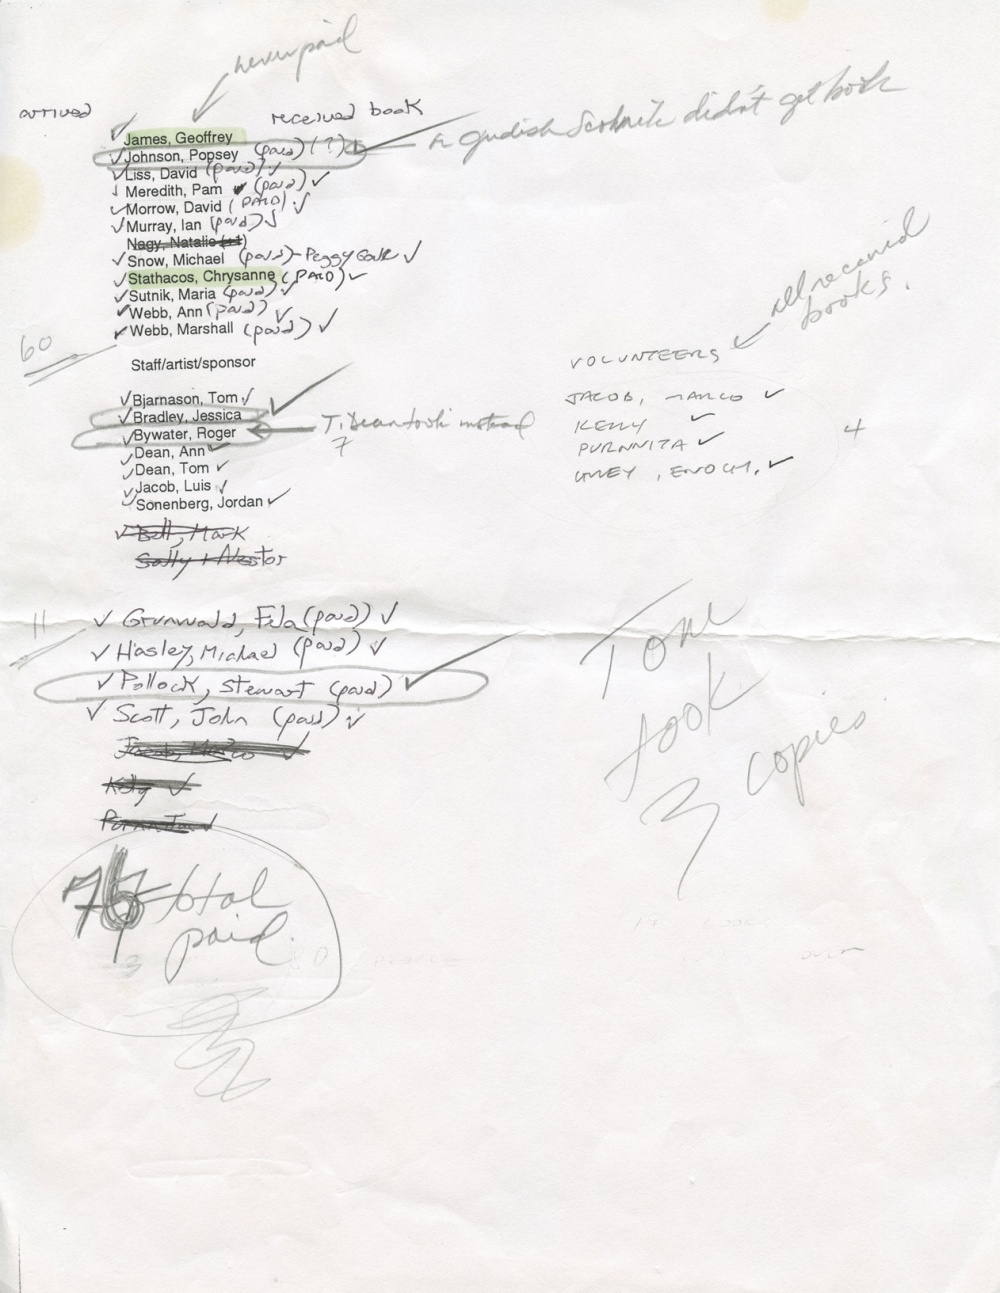 never paid
arrived
received book
✓ James, Geoffrey
✓ Johnson, Popsey (paid) (?)
didn't get book
✓ Liss, David (paid) ✓
✓ Meredith, Pam (paid) ✓
✓ Morrow, David (PAID) ✓
✓ Murray, Ian (paid) ✓
Nagy, Natalie (+1)
✓ Snow, Michael (paid) - Peggy Gale ✓
✓ Stathacos, Chrysanne (PAID) ✓
✓ Sutnik, Maria (paid) ✓
✓ Webb, Ann (paid) ✓
✓ Webb, Marshall (paid) ✓
60
Staff/artist/sponsor
✓ Bjarnason, Tom ✓
✓ Bradley, Jessica ✓
✓ Bywater, Roger
T. Dean took instead
7
✓ Dean, Ann ✓
✓ Dean, Tom ✓
✓ Jacob, Luis ✓
✓ Sonenberg, Jordan ✓
✓ Bell, Mark
Sally + Nestor
all received
books.
VOLUNTEERS
JACOB, MARCO ✓
KELLY ✓
PURNNITA ✓
, ENOCH, ✓
4
11
✓ Grunwald, Fela (paid) ✓
✓ Hasley, Michael (paid) ✓
✓ Pollock, Stewart (paid) ✓
✓ Scott, John (paid) ✓
Jacob, Marco ✓
Kelly ✓
Tom
took
3 copies
76 total
paid.